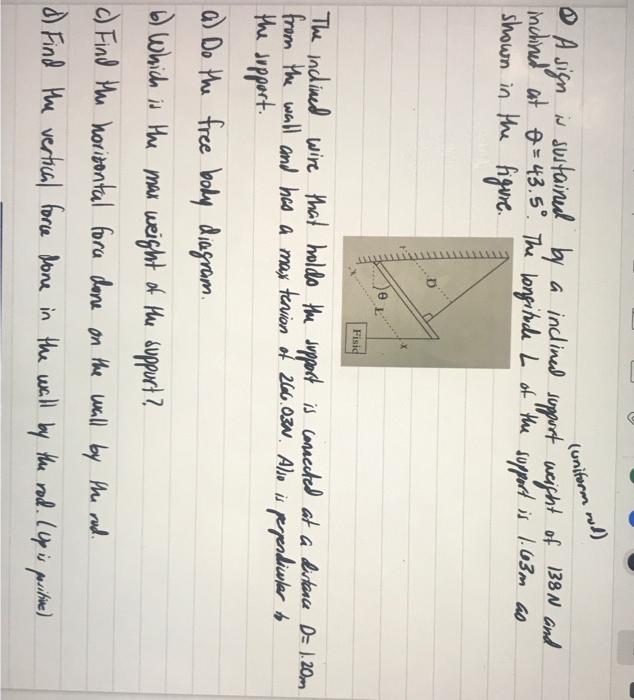 (uniform rod)
① A sign is sustained by a inclined support weight of 138 N and
inclined at θ = 43.5°. The longitude L of the support is 1.63m as
shown in the figure.
D
θ
L
Fisic
The inclined wire that holds the support is connected at a distance D = 1.20m
from the wall and has a max tension of 266.03N. Also is perpendicular to
the support.
a) Do the free body diagram.
b) Which is the max weight of the support?
c) Find the horizontal force done on the wall by the rod.
d) Find the vertical force done in the wall by the rod. (up is positive)